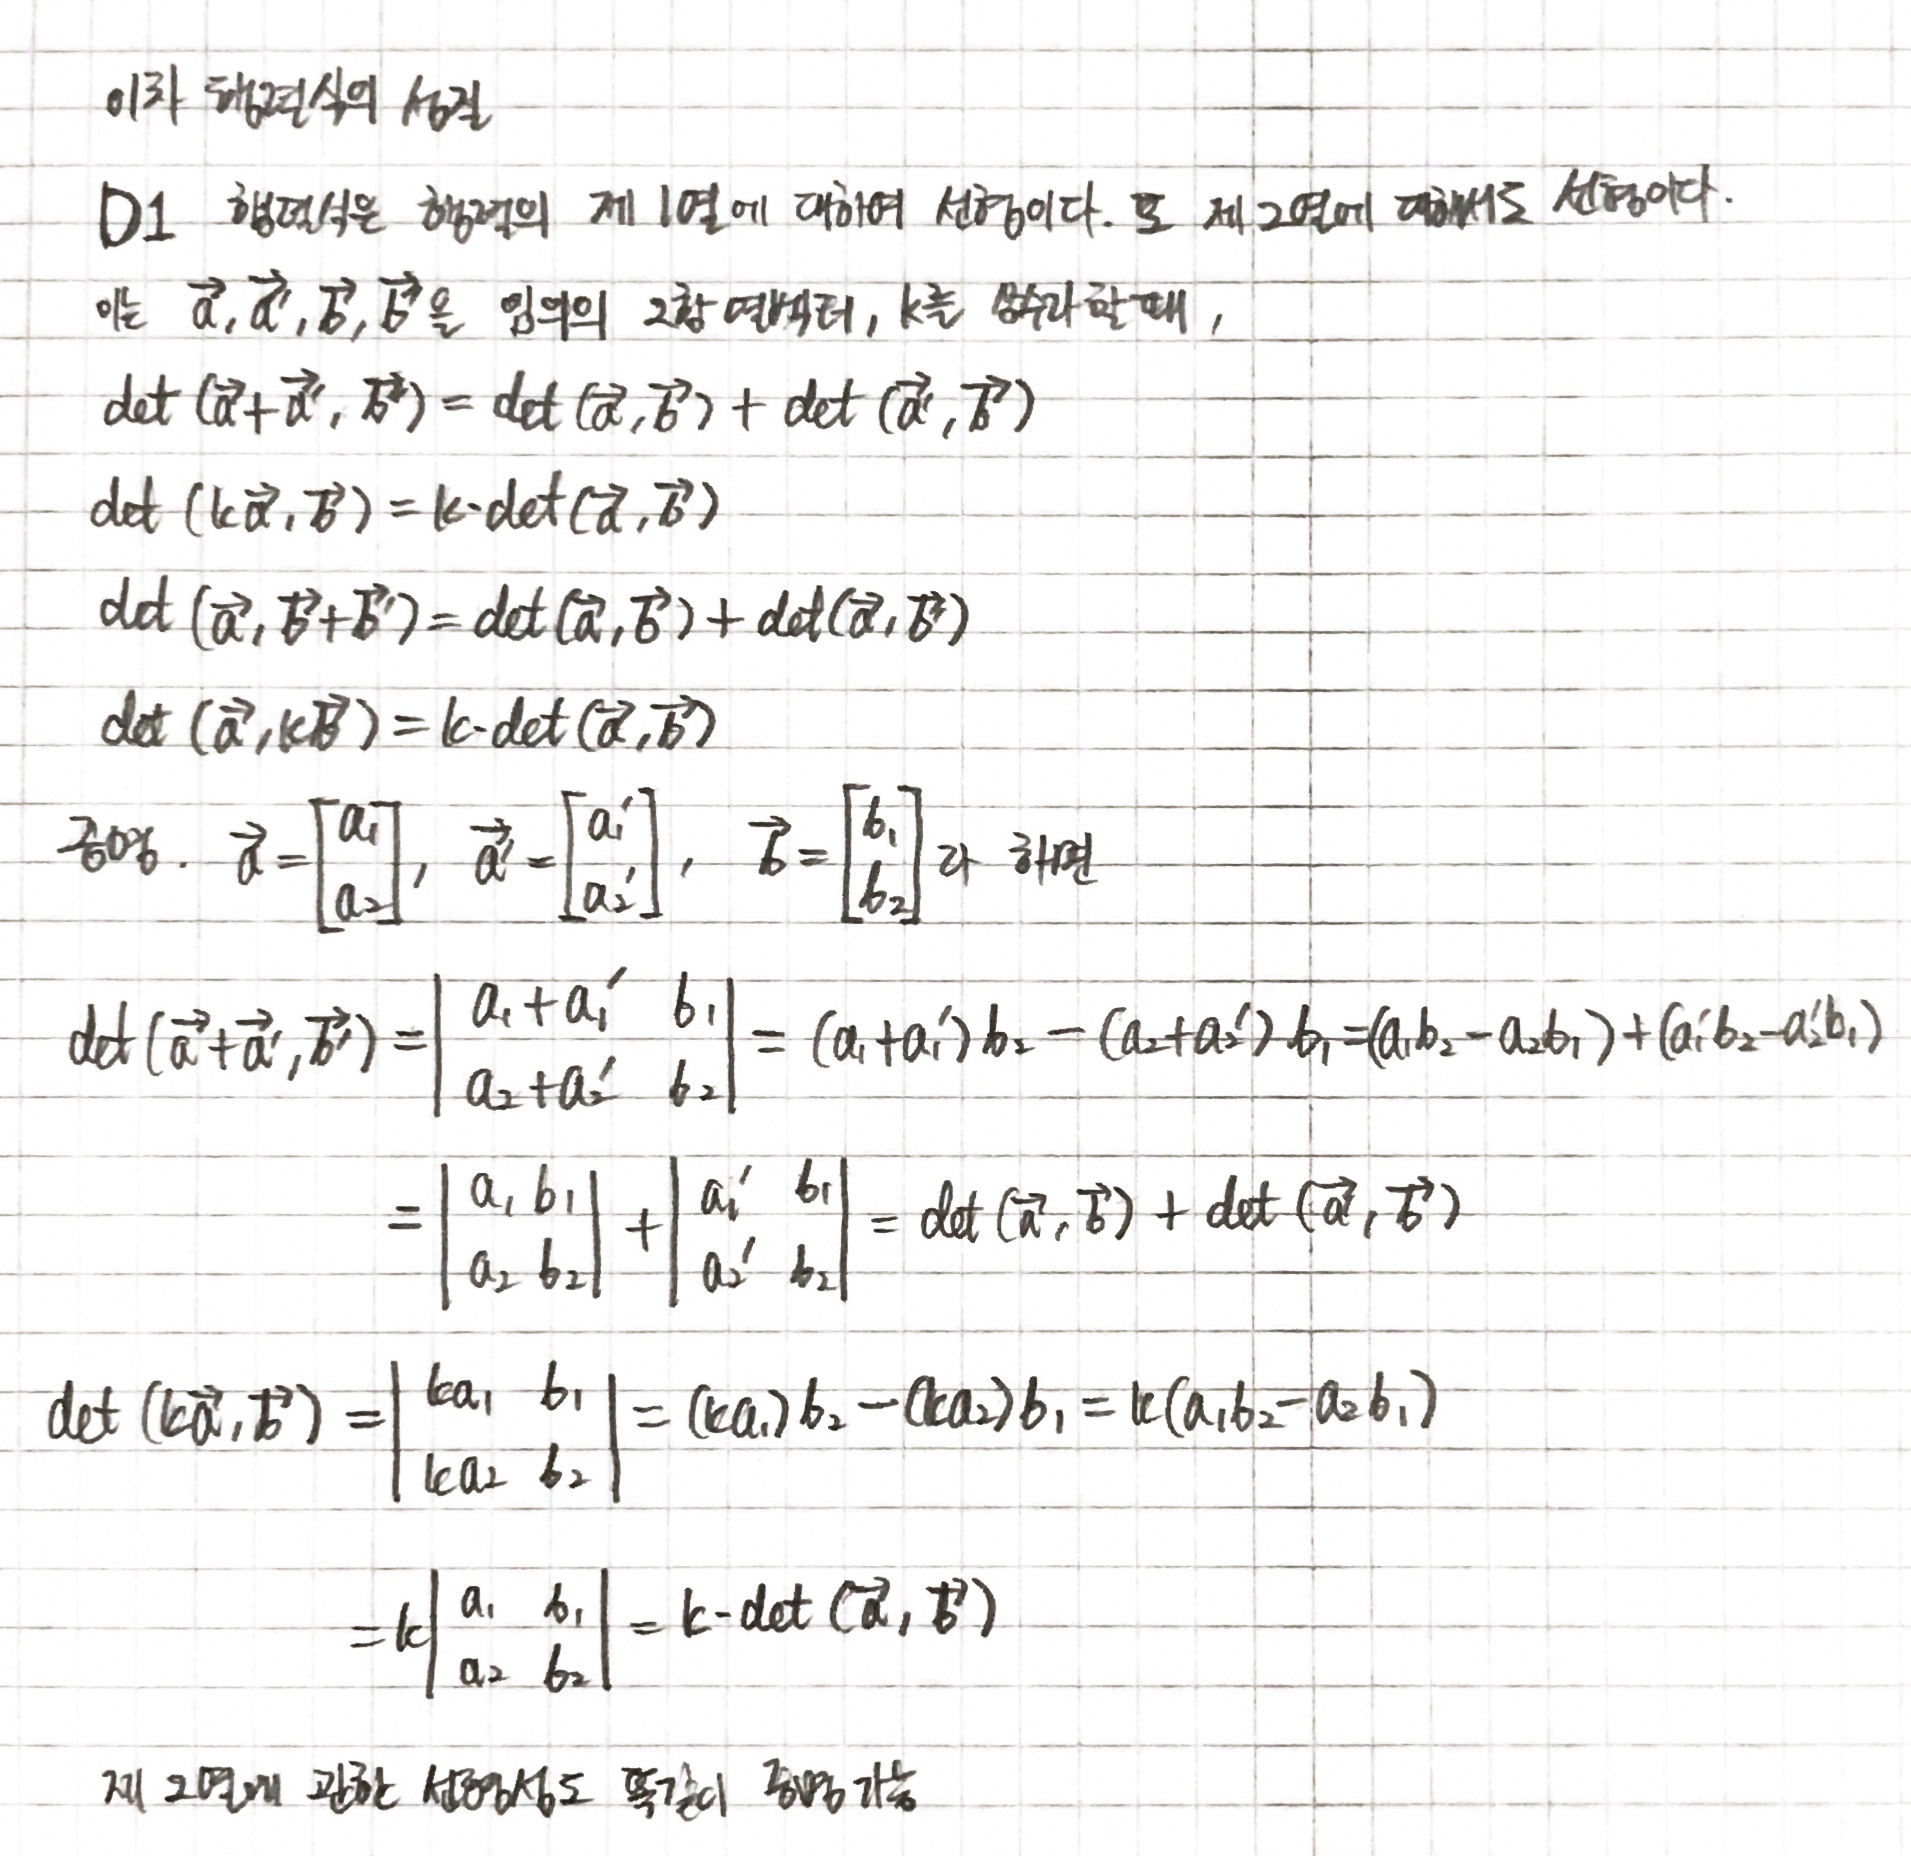 이차 행렬식의 성질
D1 행렬식은 행렬의 제 1열에 대하여 선형이다. 또 제 2열에 대해서도 선형이다.
이는 a⃗, a⃗', b⃗, b⃗'을 임의의 2항 열벡터, k를 상수라 할 때,
det (a⃗+a⃗', b⃗) = det (a⃗, b⃗) + det (a⃗', b⃗)
det (ka⃗, b⃗) = k·det(a⃗, b⃗)
det (a⃗, b⃗+b⃗') = det(a⃗, b⃗) + det(a⃗, b⃗')
det (a⃗, kb⃗) = k·det(a⃗, b⃗)
증명. a⃗ = [a₁ a₂], a⃗' = [a₁' a₂'], b⃗ = [b₁ b₂] 라 하면
det(a⃗+a⃗', b⃗) = |a₁+a₁' b₁ a₂+a₂' b₂| = (a₁+a₁')b₂ - (a₂+a₂')b₁ = (a₁b₂-a₂b₁) + (a₁'b₂-a₂'b₁)
= |a₁ b₁ a₂ b₂| + |a₁' b₁ a₂' b₂| = det (a⃗, b⃗) + det (a⃗', b⃗)
det (ka⃗, b⃗) = |ka₁ b₁ ka₂ b₂| = (ka₁)b₂ - (ka₂)b₁ = k(a₁b₂-a₂b₁)
= k|a₁ b₁ a₂ b₂| = k·det (a⃗, b⃗)
제 2열에 관한 선형성도 똑같이 증명가능